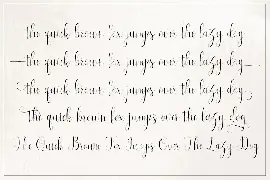 the quick brown fox jumps over the lazy dog
the quick brown fox jumps over the lazy dog
the quick brown fox jumps over the lazy dog
the quick brown fox jumps over the lazy dog
The Quick Brown Fox Jumps Over The Lazy Dog